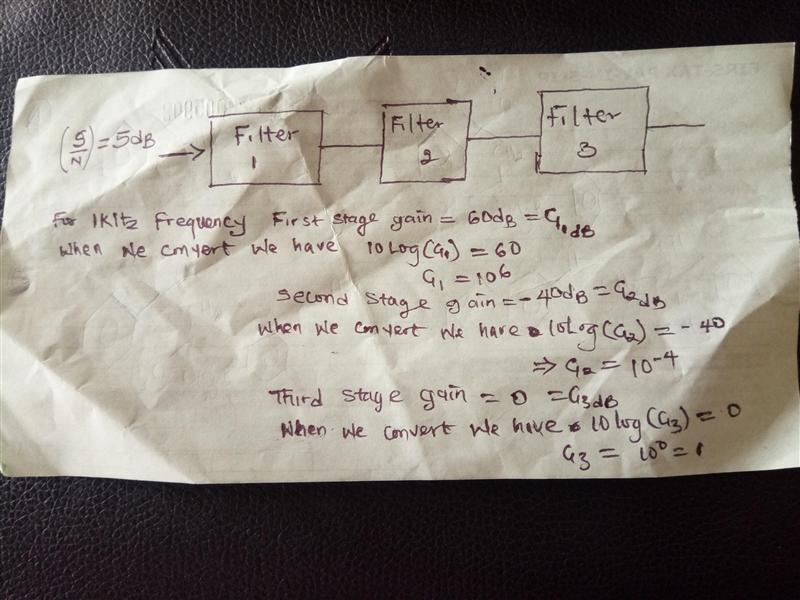 (S/N) = 5dB
Filter 1
Filter 2
Filter 3
For 1KHz Frequency First stage gain = 60dB = G1dB
When we convert we have 10Log(G1) = 60
G1 = 10^6
Second stage gain = -40dB = G2dB
When we convert we have 10Log(G2) = -40
⇒ G2 = 10^-4
Third stage gain = 0 = G3dB
When we convert we have 10log(G3) = 0
G3 = 10^0 = 1